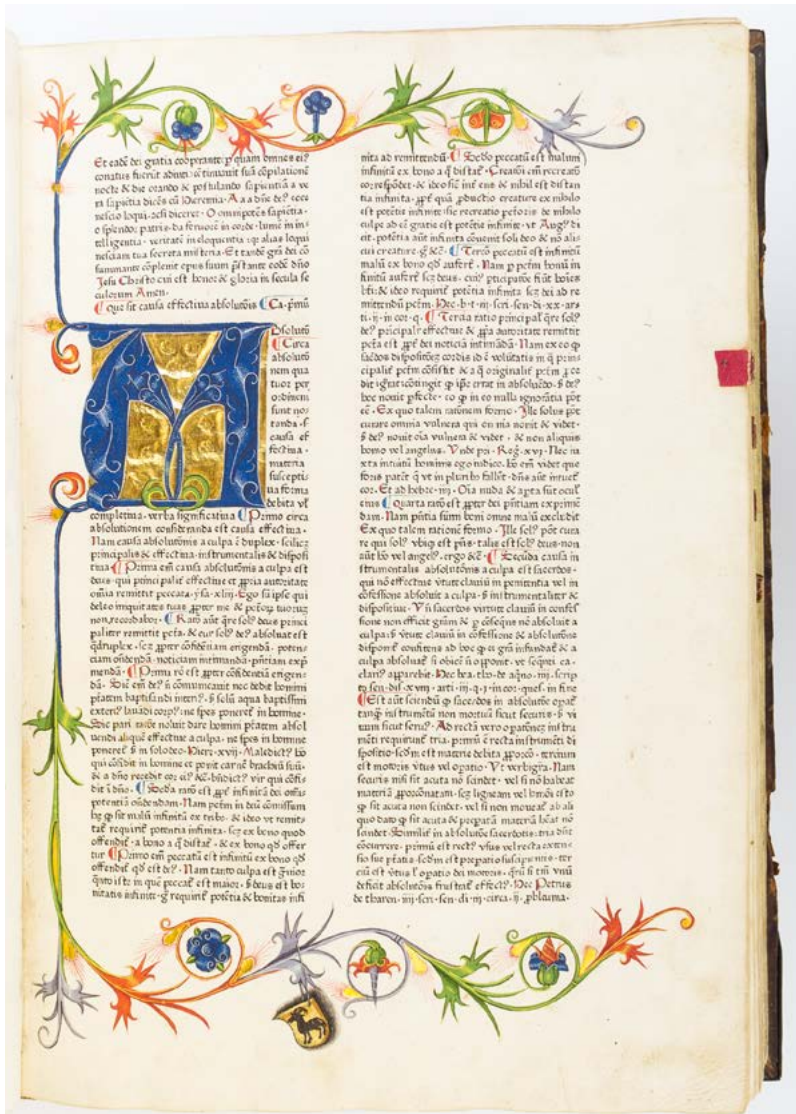 Et eadē dei gratia cooperante p quam omnes eiꝰ
conatus fuerūt adiuti cōtinuavit suā cōpilationē
nocte & die orando & postulando sapientiā a ve
ra sapiētia dicēs cū Hieremia · A a a dn̄e deꝰ ecce
nescio loqui · acsi diceret · O omnipotēs sapiētia ·
o splendor patris · da feruorē in corde · lumē in in
telligentia · veritatē in eloquentia alias loqui
nesciam tua secreta misteria · Et tandē grā dei cō
summante cōplevit opus suum p̄stante eodē dn̄o
Jesu Christo cui est honor & gloria in secula se
culorum Amen.
¶ Que sit causa effectiva absolutōis ¶ Ca · pṙmū
Absolutō
¶ Circa
absolutō
nem qua
tuor per
ordinem
sunt no
tanda · s
causa ef
fectiva ·
materia
suscepti
ua forma
debita vl
completiua · verba significatiua ¶ Primo circa
absolutionem consideranda est causa effectiua ·
Nam causa absolutōnis a culpa ē duplex · scilicꝫ
principalis & effectiua · instrumentalis & disposi
tiua ¶ Prima em̄ causa absolutōnis a culpa est
deus · qui principalit̄ effectiue et ꝓpria autoritate
omīa remittit peccata · ysa · xliij · Ego sū ipse qui
deleo iniquitates tuas ꝓpter me & pctōꝝ tuoꝝ
non recordabor · ¶ Ratō aūt q̄re solꝰ deus princi
paliter remittit pctā · & cur solꝰ deꝰ absoluat est
q̄druplex · scꝫ ꝓpter cōfidētiam erigendā · poten
ciam on̄dendā · noticiam intimandā · pn̄tiam exp̄
mendā · ¶ Prima rō est ꝓpter cōfidētiā erigen
dā · Sic em̄ deꝰ n̄ cōmunicauit nec dedit homini
ptātem baptisandi interꝰ · s̄ solū aqua baptismi
exteriꝰ lauādi corpꝰ · ne spes poneret̄ in homine ·
Sic pari raōne noluit dare homini ptātem absol
uendi aliquē effectiue a culpa · ne spes in homine
poneret̄ s̄ in solo deo · Hiere · xvij · Maledictꝰ hō
qui cōfidit in homine et ponit carnē brachiū suū ·
& a dn̄o recedit cor eiꝰ &c̄ · bn̄dictꝰ vir qui cōfi
dit ī dn̄o · ¶ Secūda ratō est ꝓpt̄ infinitā dei
potentiā on̄dendam · Nam pctm̄ in deū cōmissum
hꝫ ꝙ sit malū infinitū ex tribꝰ · & ideo vt remit
tat̄ requirit̄ potentia infinita · scꝫ ex bono quod
offendit̄ · a bono a q̄ distat̄ · & ex bono qd̄ offer
tur ¶ Primo em̄ peccatū est infinitū ex bono qd̄
offendit̄ qd̄ est deꝰ · Nam tanto culpa est
q̄nto iste in quē peccat̄ est maior · s̄ deus est bo
nitatis infinite · g̊ requirit̄ potētia & bonitas infi
nita ad remittendū · ¶ Secūdo peccatū est malum
infinitū ex bono a q̄ distat̄ · Creatōi em̄ recreatō
correspōdet̄ · & ideo sic int̄ ens & nihil est distan
tia infinita · ꝓpt̄ quā ꝓductio creature ex nihilo
est potētie infinite · sic recreatio pctōris de nihilo
culpe ad eē gratie est potētie infinite · vt Augꝰ di
cit · potētia aūt infinita cōuenit soli deo & nō ali
cui creature · g̊ &c̄ · ¶ Tercō peccatū est infinitū
malū ex bono qd̄ aufert̄ · Nam p pctm̄ bonū in
finitū aufert̄ scꝫ deus · cuiꝰ pticipatōe fiūt hoīes
bt̄i · & ideo requirit̄ potentia infinita scꝫ dei ad re
mittendū pctm̄ · Hec · b · t · iij · scri · sen · di · xx · ar
ti · ij · in cor · q · ¶ Tercia ratio principal̄ q̄re solꝰ
deꝰ principalr̄ effectiue & ꝓpria autoritate remittit
pctā est ꝓpt̄ dei noticiā intimādā · Nam ex eo ꝙ
sacdos dispositōeꝫ cordis id ē volūtatis in q̄ prin
cipalit̄ pctm̄ cōsistit & a q̄ originalit̄ pctm̄ ꝓce
dit ignorat cōtingit ꝙ ipse errat in absoluēdo · s̄ deꝰ
hoc nouit pfecte · eo ꝙ in eo nulla ignorātia pōt
eē · Ex quo talem ratōnem formo · Ille solus pōt
curare omnia vulnera qui omnia nouit & videt ·
s̄ deꝰ nouit oīa vulnera & videt · & non aliquis
homo vel angelus · Vnde pri · Reg · xvj · Nec iu
xta intuitū hominis ego iudico · hō em̄ videt que
foris patēt ꝙ vt in pluribꝰ fallit̄ · dn̄s aūt intuet̄
cor · Et ad hebre · iiij · Oīa nuda & apta sūt oculꝰ
eius ¶ Quarta ratō est ꝓpter dei pn̄tiam exprimē
dam · Nam pn̄tia sūmi boni omne malū excludit ·
Ex quo talem rationē formo · Ille solꝰ pōt cura
re qui solꝰ vbiqꝫ est pn̄s · talis est solꝰ deus · non
aūt hō vel angelꝰ · ergo &c̄ · ¶ Secūda causa in
strumentalis absolutōnis a culpa est sacerdos ·
qui nō effectiue vtute clauiū in penitentia vel in
cōfessione absoluit a culpa · s̄ instrumentaliter &
dispositiue · Vn̄ sacerdos virtute clauiū in confes
sione non efficit grām & p cōseqn̄s nō absoluit a
culpa · s̄ vtute clauiū in cōfessione & absolutōne
disponit confitentē ad hoc ꝙ ei grā infundat̄ & a
culpa absoluat̄ si obicē n̄ opponit · vt seqn̄ti ca ·
clariꝰ apparebit · Hec bea · tho · de aq̄no · iiij · scrip
to sen · dis · xviij · arti · iij · q · j · in cor · ques · in fine
¶ Est aūt sciendū ꝙ sacerdos in absolutōe opat̄
tanq̄ instrumētū non mortuū sicut securis · s̄ vi
uum sicut seruꝰ · Ad rectā vero opatōneꝫ instru
mēti requirunt̄ tria · primū ē recta instrumēti di
spositio · scdm̄ est materie debita ꝓporcō · tercium
est motoris vtus vel opatio · Vt verbigrā · Nam
securis nisi sit acuta nō scindet · vel si nō habeat
materiā ꝓporcōnatam · scꝫ ligneam vel hmōi · esto
ꝙ sit acuta non scindet · vel si non moueat̄ ab ali
quo dato ꝙ sit acuta & p̄paratā materiā habeat nō
scindet · Similit̄ in absolutōe sacerdotis · tria dn̄t
cōcurrere · primū est rectꝰ vsus vel recta extens
sio sue ptātis · scdm̄ est p̄patio suscipientis · ter
ciū est vtus vl̄ opatio dei motoris · q̄rū si tm̄ vnū
deficit absolutōis frustrat̄ effectꝰ · Hec Petrus
de tharen · iiij · scri · sen · di · iij · circa · ij · ꝓbleuma ·